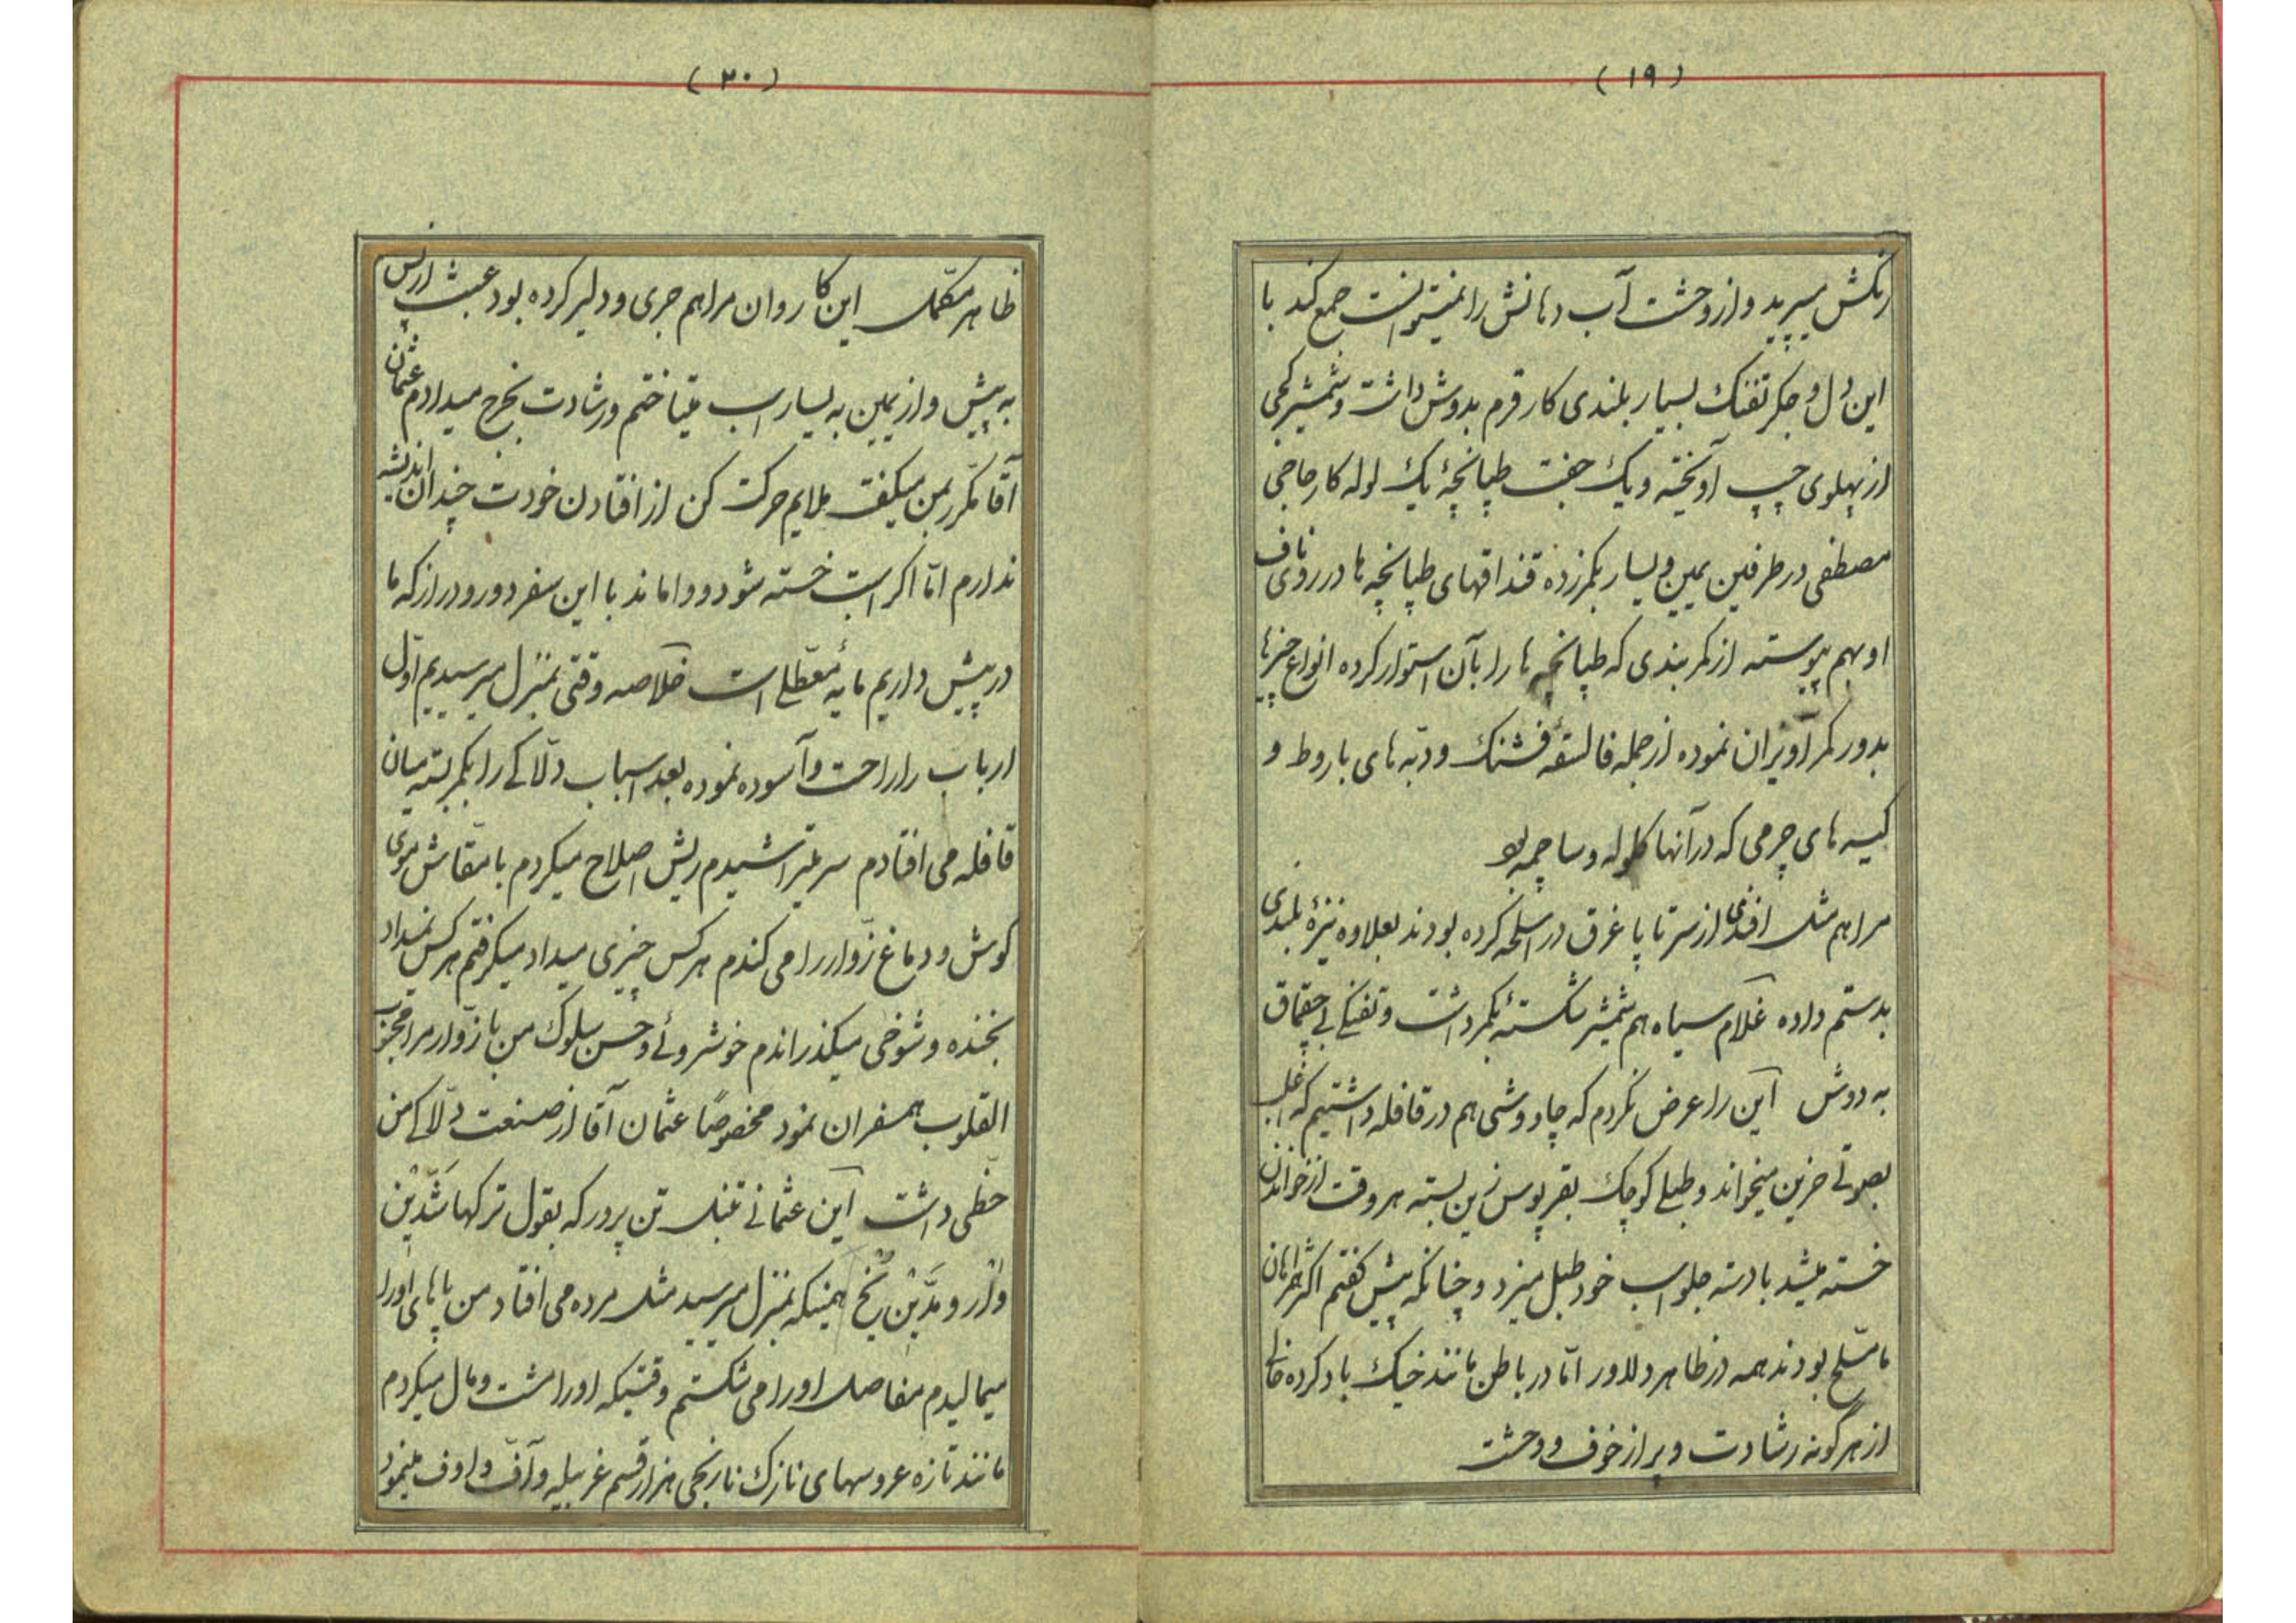 (۱۹)
رنکش میپرید و از وحشت آب دهانش را نمیتوانست جمع کند با
این دل و جکر تفنک بسیار بلندی کار قرم بدوش داشت و شمشیر کجی
از پهلوی چپ آویخته و یک جفت طپانچهٔ یک لوله کار حاجی
مصطفی در طرفین یمین و یسار بکمر زده قنداقهای طپانچه ها در روی ناف
او بهم پیوسته از کمربندی که طپانچه ها را بآن استوار کرده انواع چیزها
بدور کمر آویزان نموده از جمله فالسقهٔ فشنک و دبه های باروط و
کیسه های چرمی که در آنها کلوله و ساچمه بود
مرا هم مثل افندی از سر تا پا غرق در اسلحه کرده بودند بعلاوه نیزهٔ بلندی
بدستم داده غلام سیاه هم شمشیر شکستهٔ بکمر داشت و تفنکی بی چقماق
به دوش این را عرض نکردم که چاووشی هم در قافله داشتیم که اغلب
بصوتی حزین میخواند و طبلی کوچک بقرپوس زین بسته هر وقت از خواندن
خسته میشد با دسته جلو اسب خود طبل میزد و چنانکه پیش کفتم اکثر همراهان
ما مسلح بودند همه در ظاهر دلاور اما در باطن مانند خیک باد کرده خالی
از هرگونه رشادت و پر از خوف و وحشت
(۲۰)
ظاهر مکمل این کاروان مرا هم جری و دلیر کرده بود عبث از پس
به پیش و از یمین به یسار اسب میتاختم و رشادت بخرج میدادم عثمان
آقا مکرر بمن میکفت ملایم حرکت کن از افتادن خودت چندان اندیشه
ندارم اما اکر اسبت خسته شود و واماند با این سفر دور و دراز که ما
در پیش داریم مایهٔ معطلی است خلاصه وقتی بمنزل میرسیدیم اول
ارباب را راحت و آسوده نموده بعد اسباب دلاکی را بکمر بسته میان
قافله می افتادم سر میتراشیدم ریش اصلاح میکردم با منقاش موی
کوش و دماغ زوار را می کندم هر کس چیزی میداد میکرفتم هر کس نمیداد
بخنده و شوخی میکذراندم خوشروئی و حسن سلوک من با زوار مرا محبوب
القلوب همسفران نمود مخصوصا عثمان آقا از صنعت دلاکی من
حظی داشت این عثمانی تنبل تن پرور که بقول ترکها شدین
وار و مدین یخ همینکه بمنزل میرسید مثل مرده می افتاد من پاهای او را
میمالیدم مفاصل او را می شکستم وقتیکه او را مشت و مال میکردم
مانند تازه عروسهای نازک نارنجی هزار قسم غربیله و آف و اوف مینمود